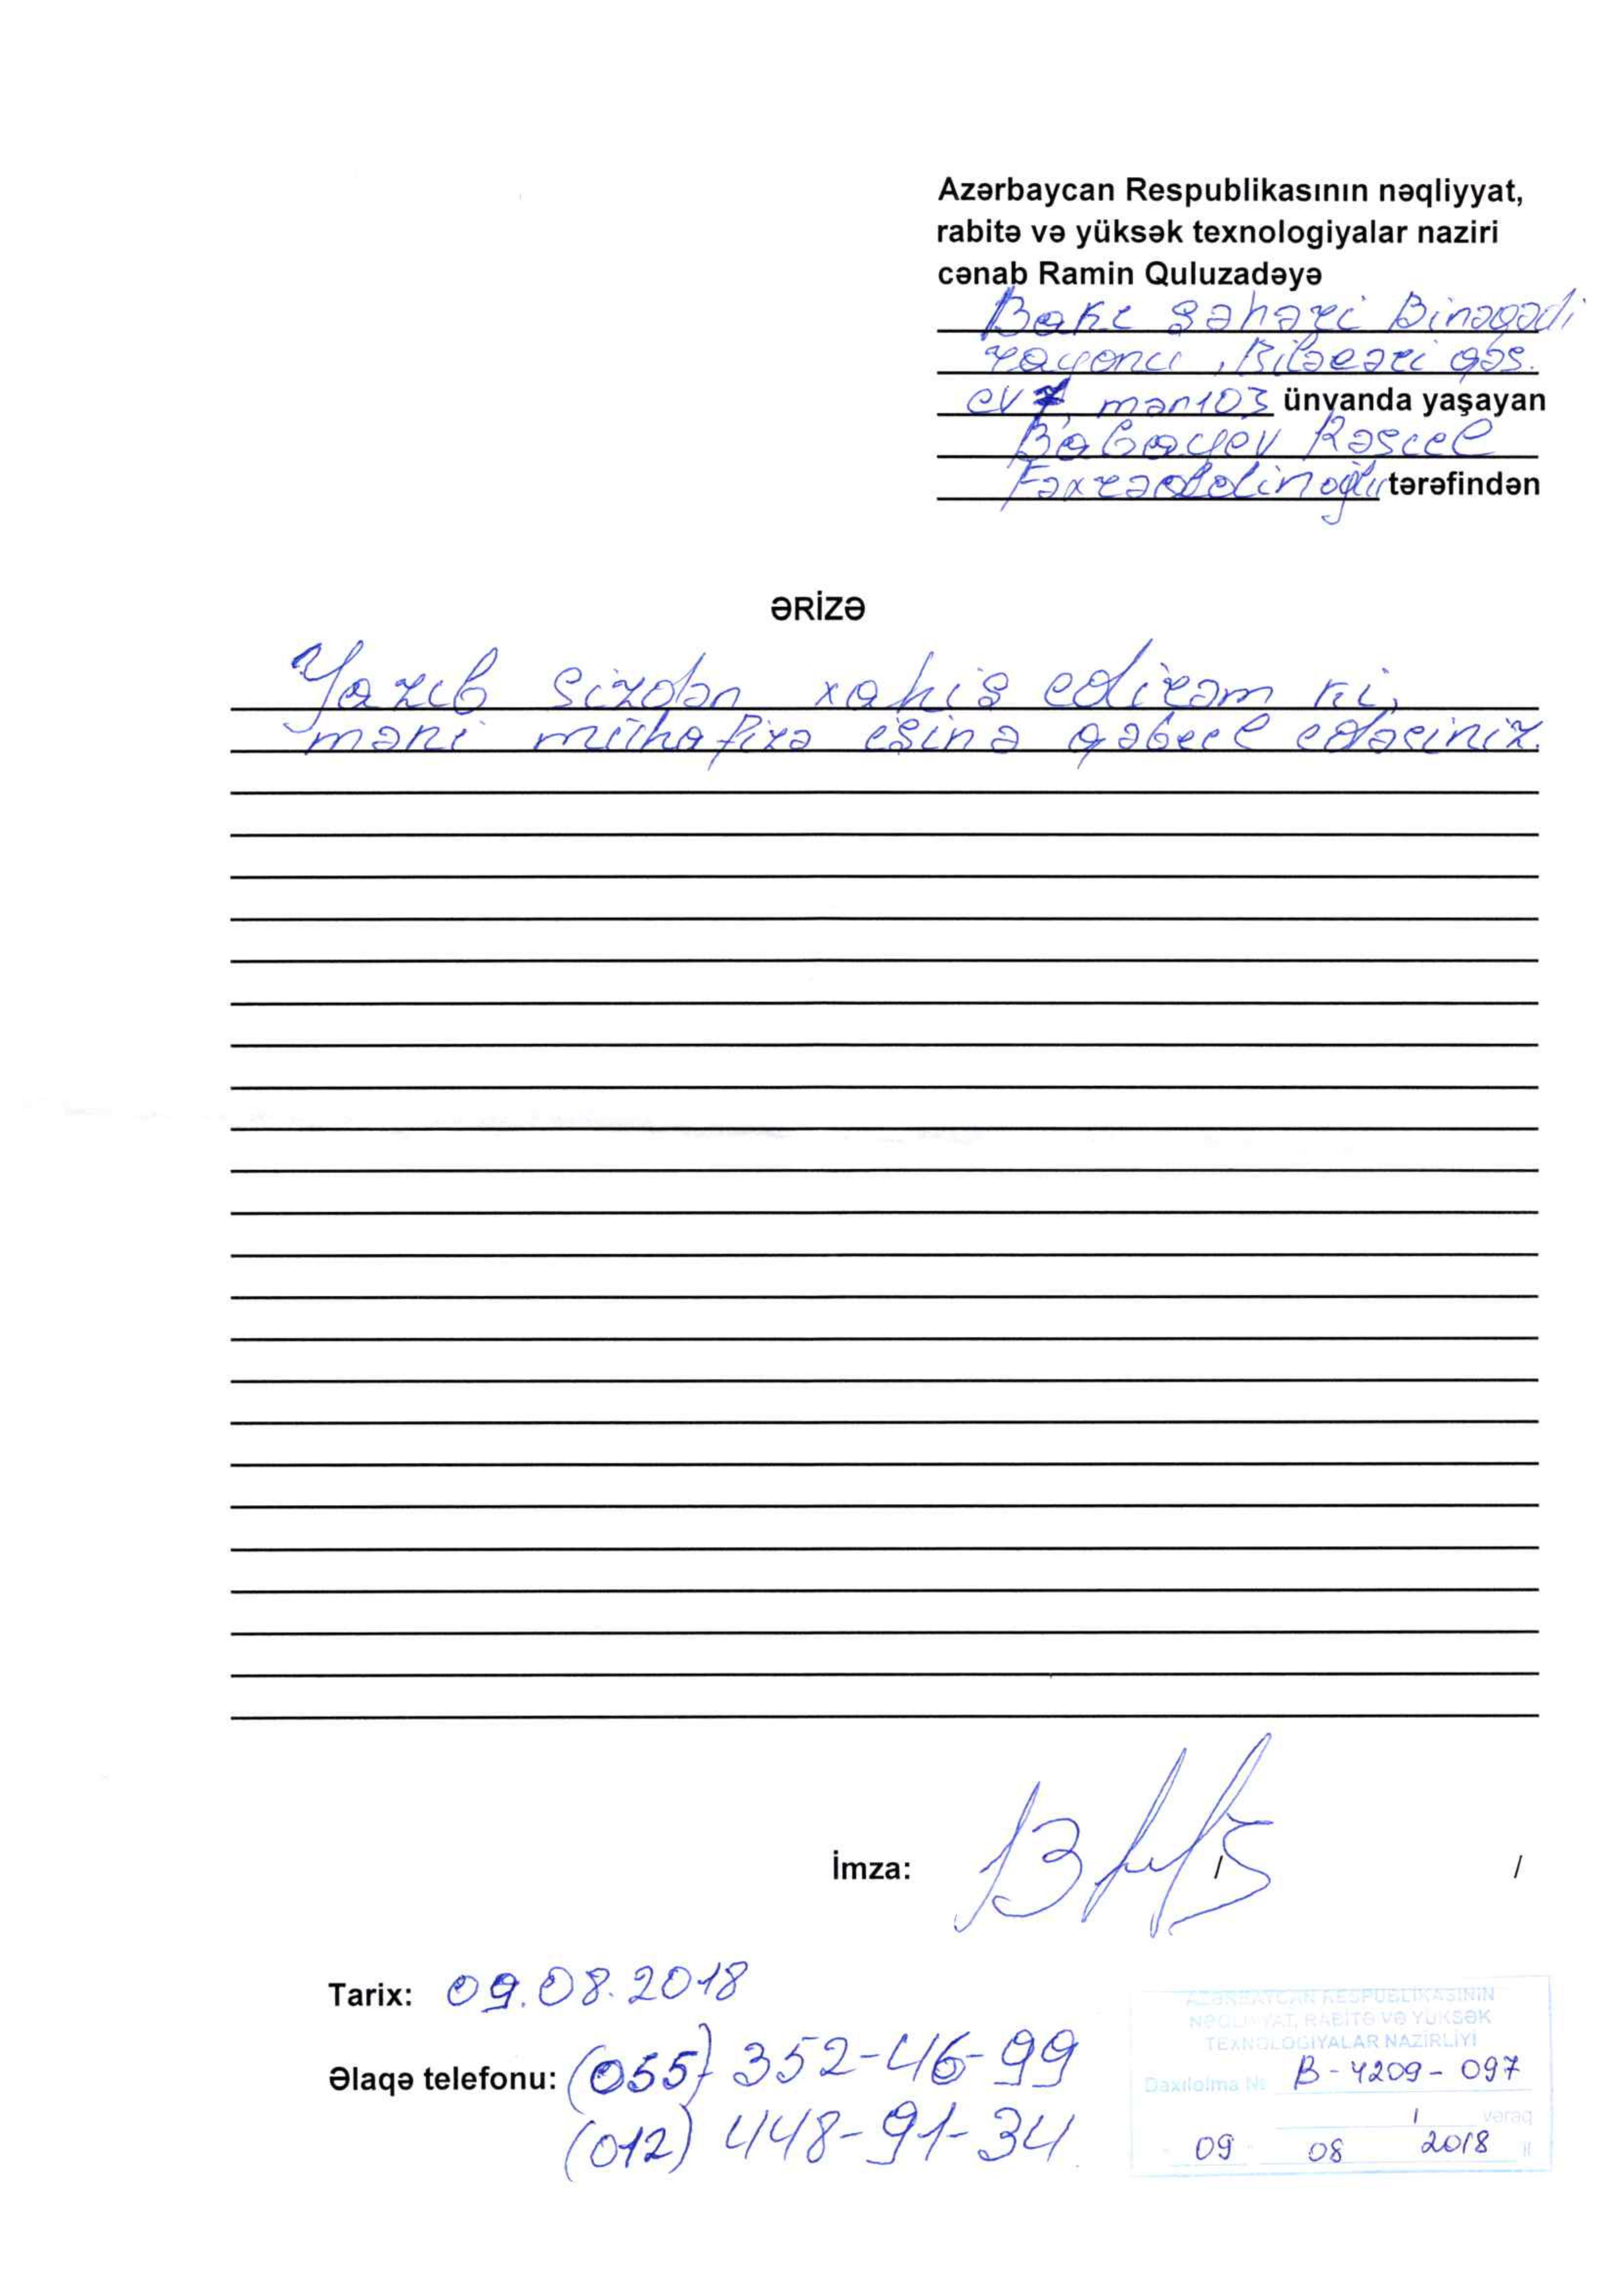 Azərbaycan Respublikasının nəqliyyat,
rabitə və yüksək texnologiyalar naziri
cənab Ramin Quluzadəyə
Bakı şəhəri Binəqədi
rayonu, Biləcəri qəs.
ev 7, mən 103 ünvanda yaşayan
Babayev Rəsul
Fəxrəddin oğlu tərəfindən
ƏRİZƏ
Yazıb sizdən xahiş edirəm ki,
məni mühafizə işinə qəbul edəsiniz.
İmza: / /
Tarix: 09.08.2018
Əlaqə telefonu: (055) 352-46-99
(012) 448-91-34
AZƏRBAYCAN RESPUBLİKASININ
NƏQLİYYAT, RABİTƏ VƏ YÜKSƏK
TEXNOLOGİYALAR NAZİRLİYİ
Daxilolma № B-4209-097
1 vərəq
09 08 2018 il